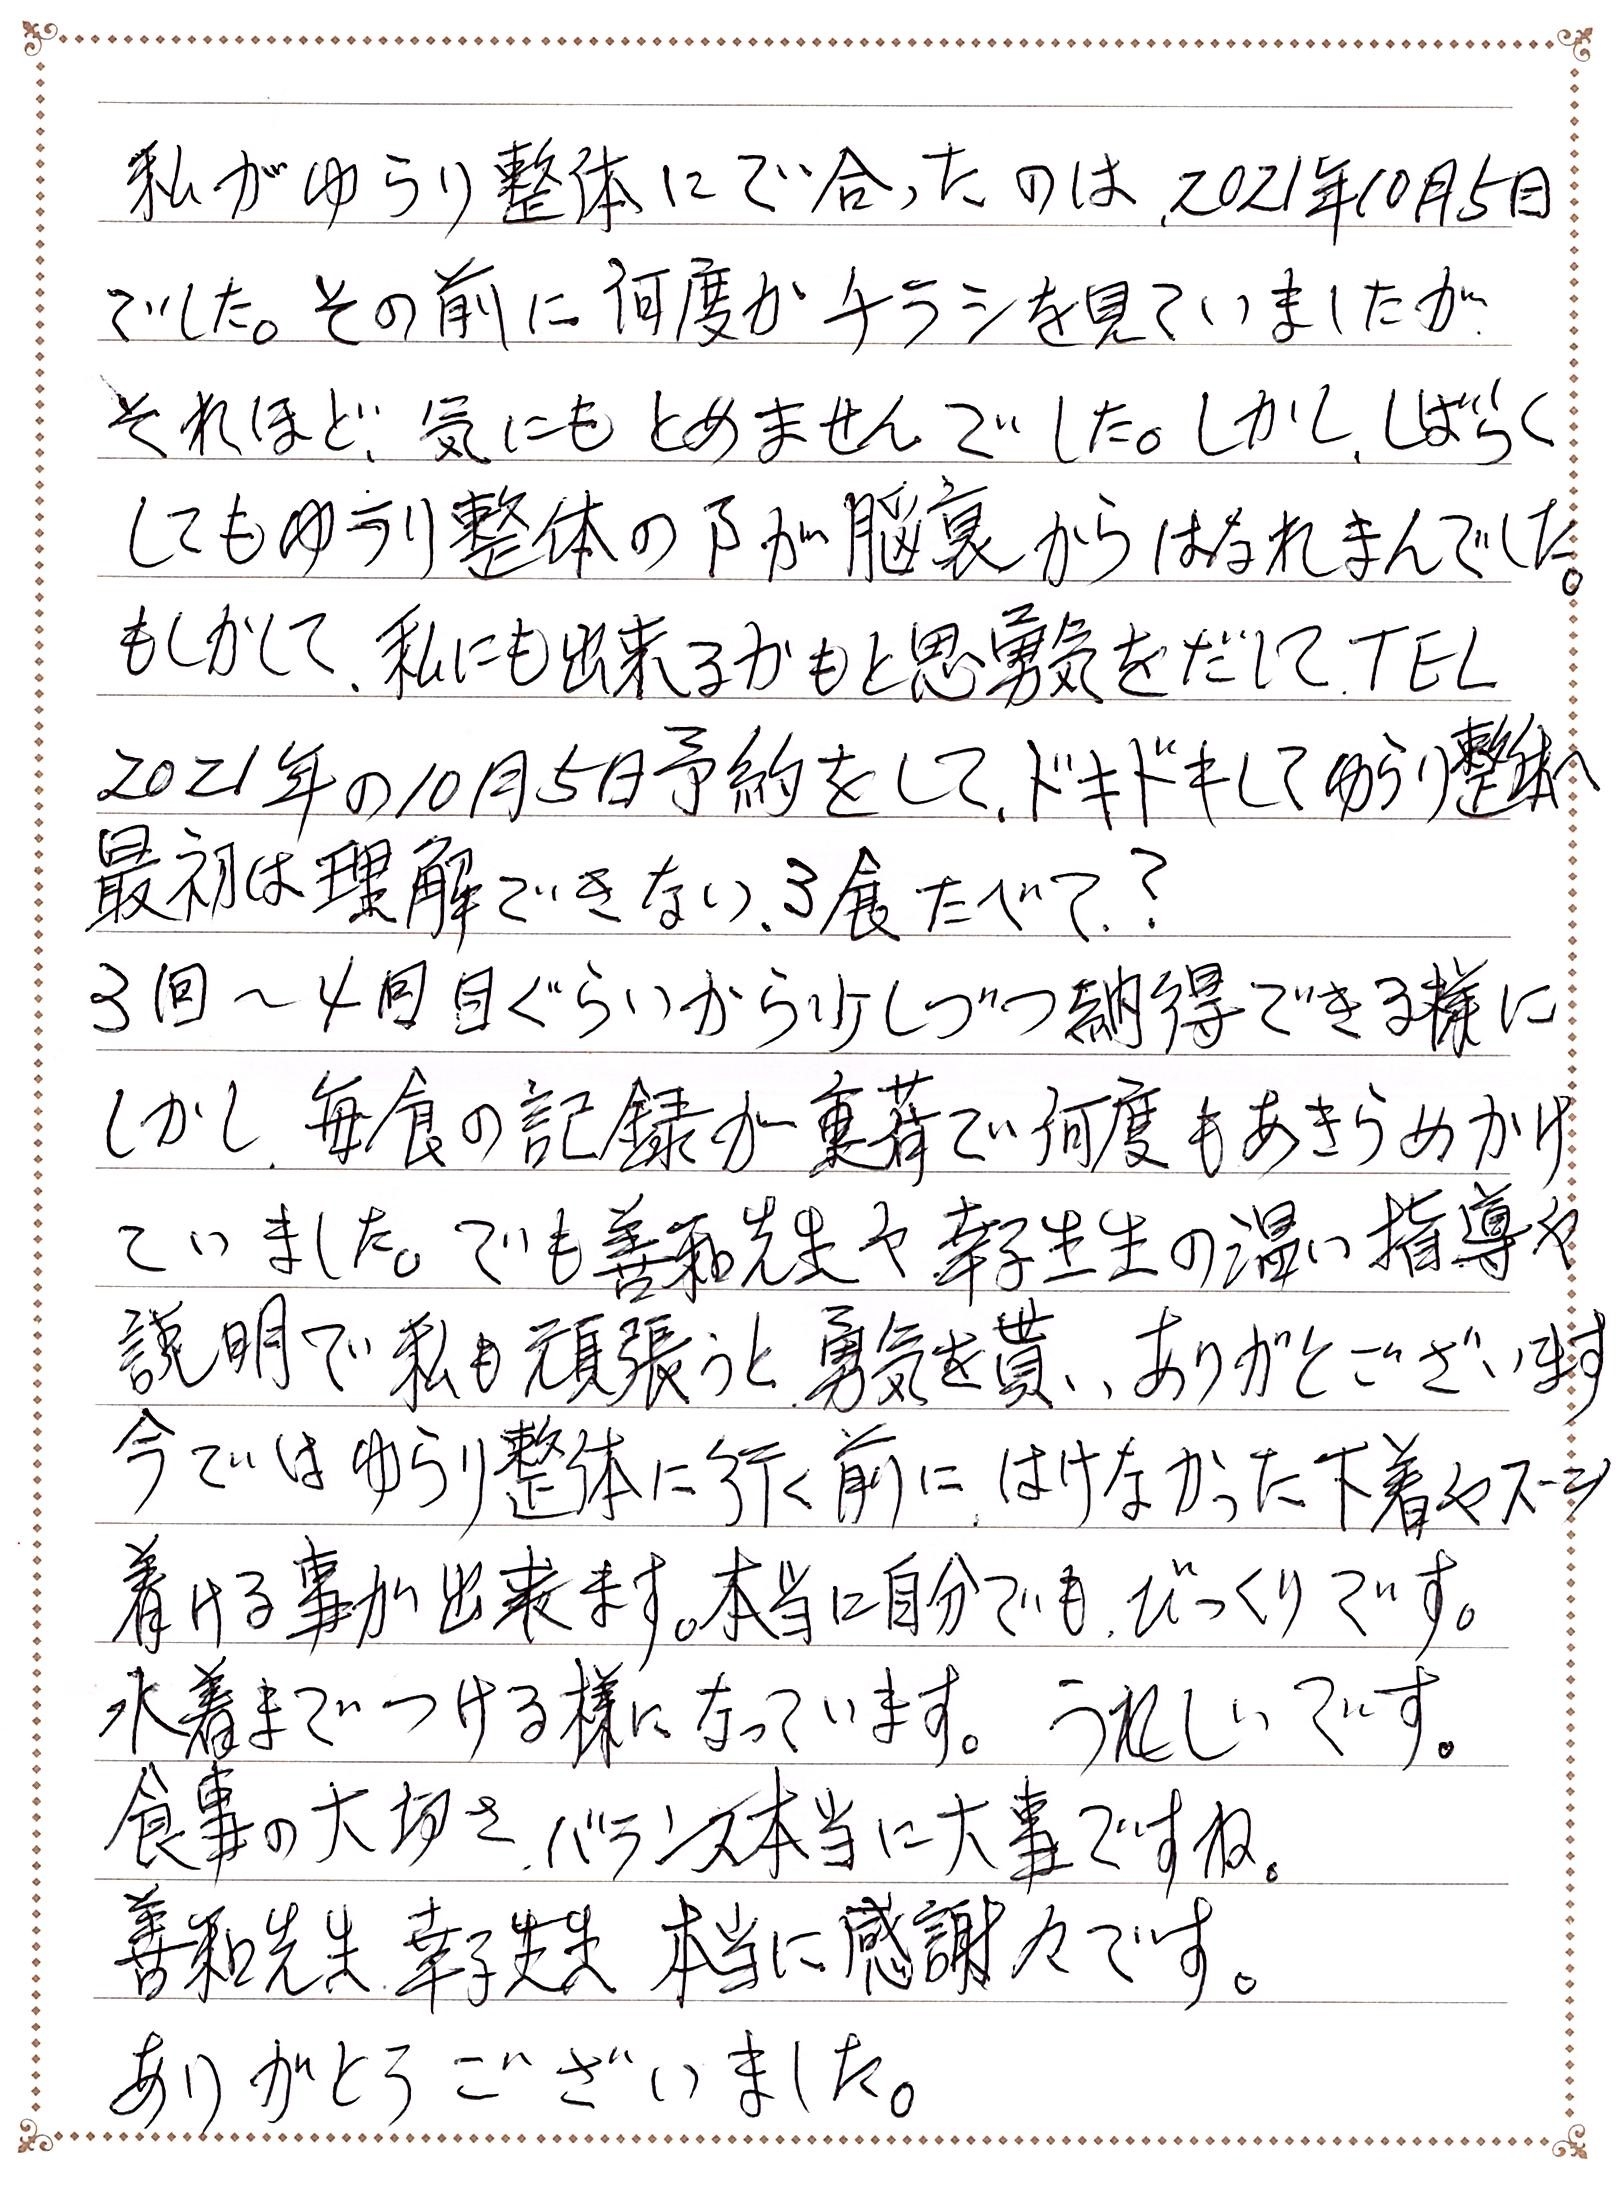 私がゆらり整体にで合ったのは、2021年10月5日
でした。その前に何度かチラシを見ていましたが
それほど、気にもとめませんでした。しかし、しばらく
してもゆらり整体の が脳裏からはなれまんでした。
もしかして、私にも出来るかもと思勇気をだして、TEL
2021年の10月5日予約をして、ドキドキしてゆらり整体へ
最初は理解できない、3食たべて、?
3回〜4回目ぐらいから少しづつ納得できる様に
しかし、毎食の記録が重荷で何度もあきらめかけ
ていました。でも善和先生や幸子先生の温い指導や
説明で私も頑張うと、勇気を貰い、ありがとございます
今ではゆらり整体に行く前に、はけなかった下着やスーツ
着ける事が出来ます。本当に自分でも、びっくりです。
水着までつける様になっています。 うれしいです。
食事の大切さ、バランス本当に大事ですね。
善和先生、幸子先生 本当に感謝々です。
ありがとうございました。